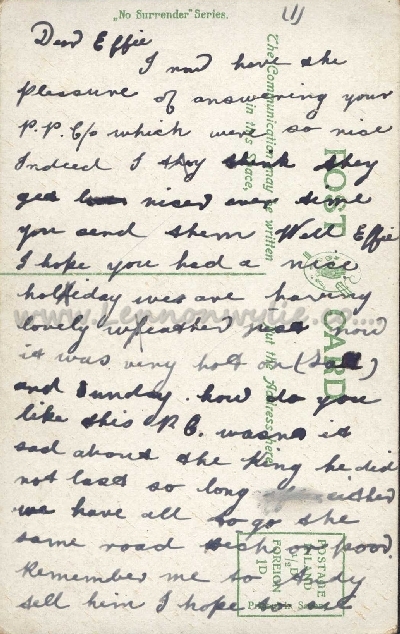 "No Surrender" Series.
(1)
Dear Effie
I now have the
pleasure of answering your
P.P.C/s which were so nice
Indeed I think they
get nicer ever time
you send them Well Effie
I hope you had a nice
holliday wes are having
lovely weather just now
it was very hot on (Sat)
and Sunday. how do you
like this P.C. wasnt it
sad about the King he did
not last so long either
we have all to go the
same road rich or poor.
Remember me to Andy
tell him I hope to see
POST CARD
The Communication may be written
in this space,
but the Address here
POSTAGE
INLAND
1/2 D
FOREIGN
1D
Printed in Saxony
www.lennonwylie.co